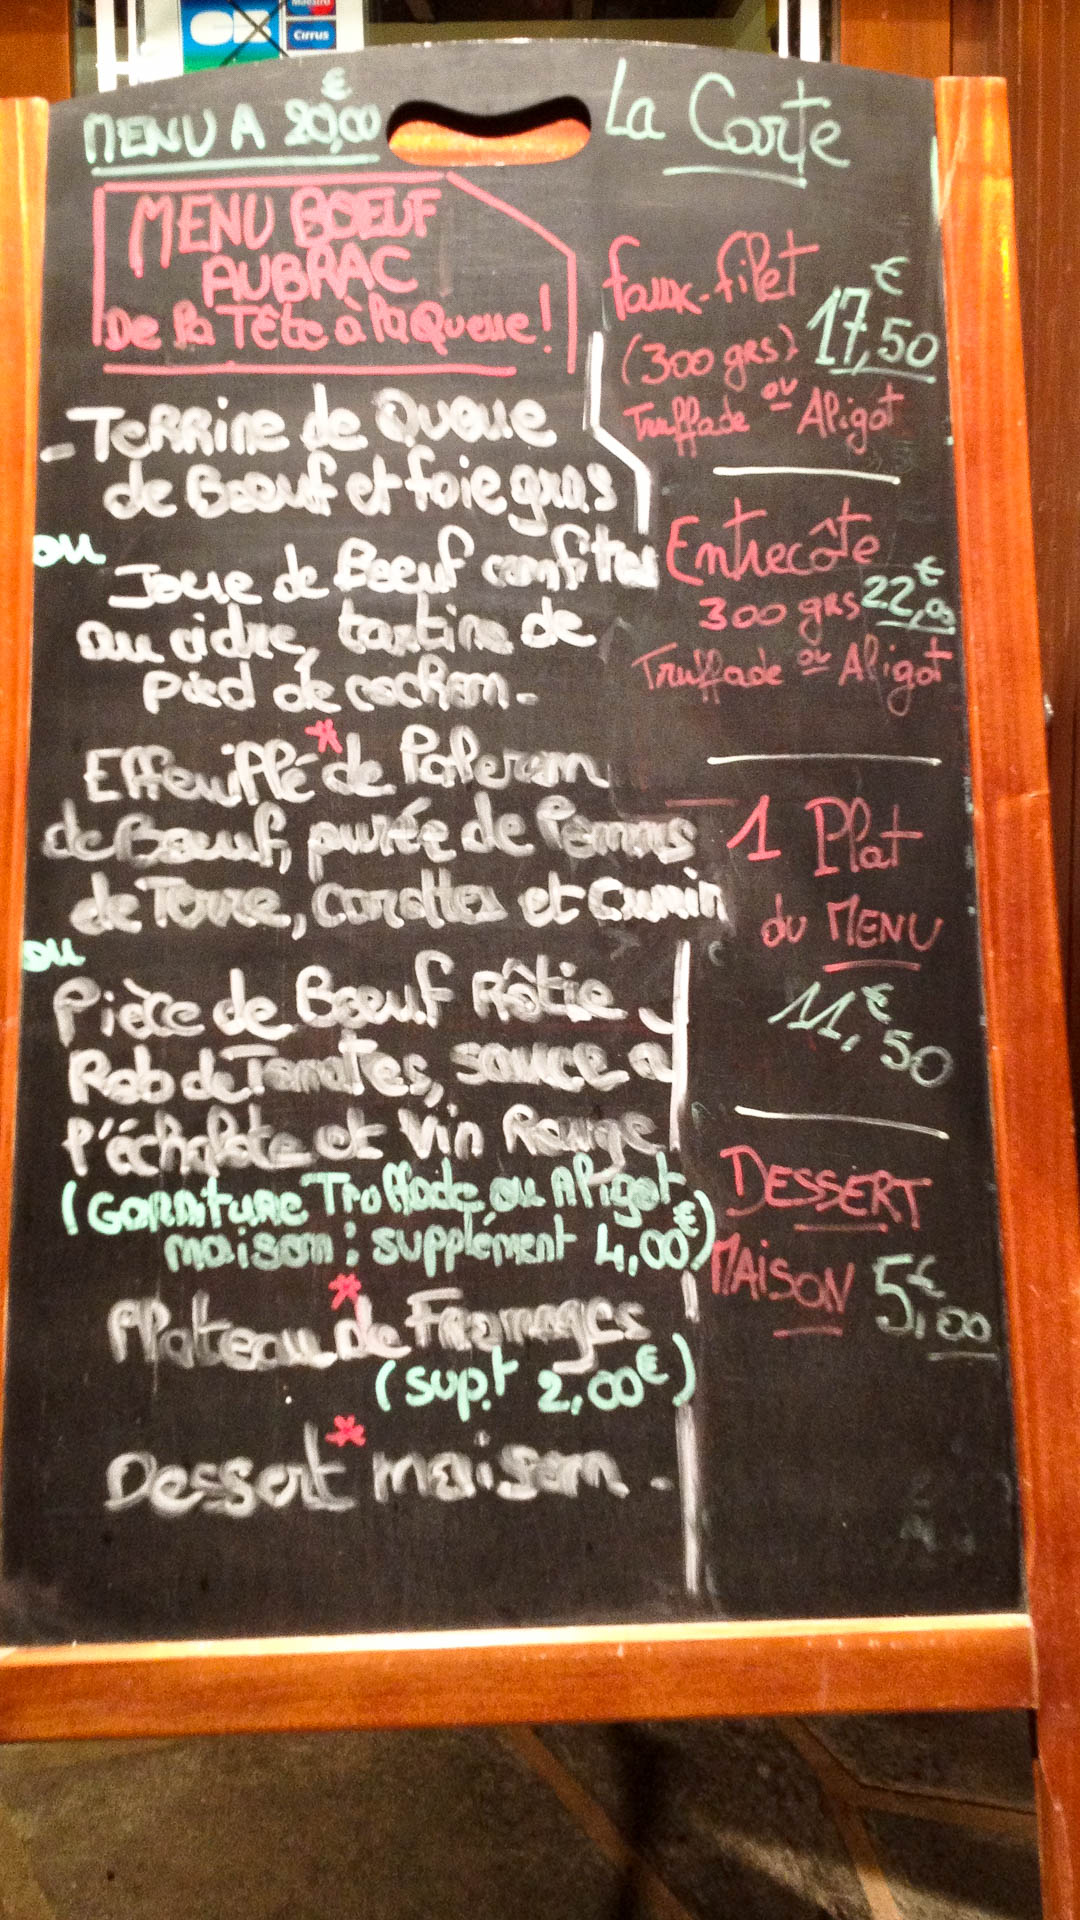 CB
Maestro
Cirrus
MENU A 20,00€
MENU BŒUF
AUBRAC
De la Tête à la Queue !
- Terrine de Queue
de Bœuf et foie gras
ou
Joue de Bœuf confites
au cidre, tartine de
pied de cochon -
*
Effeuillé de Paleron
de Bœuf, purée de Pommes
de Terre, carottes et Cumin
ou
Pièce de Bœuf Rôtie
Rob de Tomates, sauce a
l'échalote et Vin Rouge
(GARNITURE Truffade ou Aligot
maison : supplément 4,00€)
*
Plateau de Fromages
(supt 2,00€)
*
Dessert maison -
La Carte
Faux-filet
(300 grs) 17,50€
Truffade ou Aligot
Entrecôte
300 grs 22,00€
Truffade ou Aligot
1 Plat
du MENU
11,50€
DESSERT
MAISON 5,00€